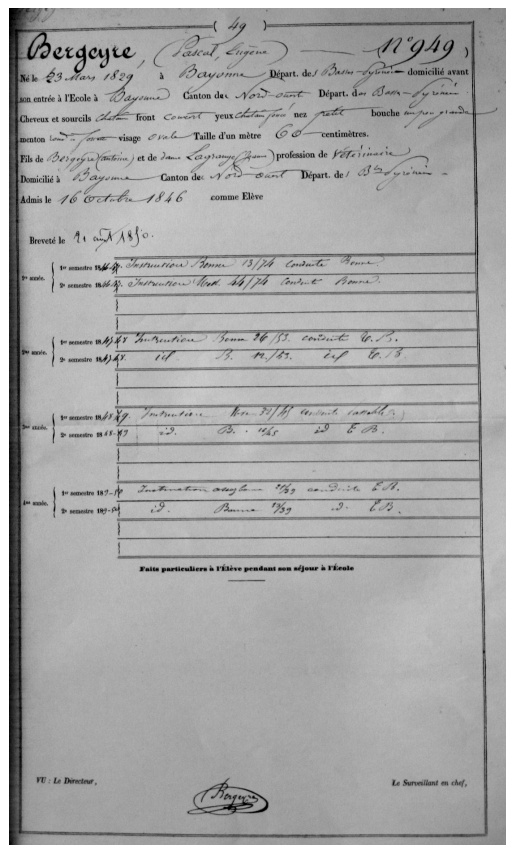 ( 49 )
Bergeyre, (Pascal, Eugène) — N° 949,
Né le 23 Mars 1829 à Bayonne Départ. des Basses-Pyrénées domicilié avant
son entrée à l'Ecole à Bayonne Canton de Nord-ouest Départ. des Basses-Pyrénées
Cheveux et sourcils chatain front couvert yeux nez petit bouche moyenne grande
menton rond visage ovale Taille d'un mètre 60 centimètres.
Fils de Bergeyre (antoine) et de dame Lagrange profession de Vétérinaire
Domicilié à Bayonne Canton de Nord-ouest Départ. des Bses Pyrénées
Admis le 16 Octobre 1846 comme Elève
Breveté le 21 août 1850.
1re année. 1er semestre 1846-47. Instruction Bonne 13/74 conduite Bonne
2e semestre 1846-47. Instruction 44/74 conduite Bonne.
2me année. 1er semestre 1847-48 Instruction Bonne 26/53. conduite T. B.
2e semestre 1847-48. id B. 12/53. id T. B.
3me année. 1er semestre 1848-49. Instruction conduite passable
2e semestre 1848-49 id. B. 12/45 id T. B.
4me année. 1er semestre 1849-50 Instruction conduite T. B.
2e semestre 1849-50 id. Bonne id. T. B.
Faits particuliers à l'Élève pendant son séjour à l'École
VU : Le Directeur,
Le Surveillant en chef,
Bergeyre